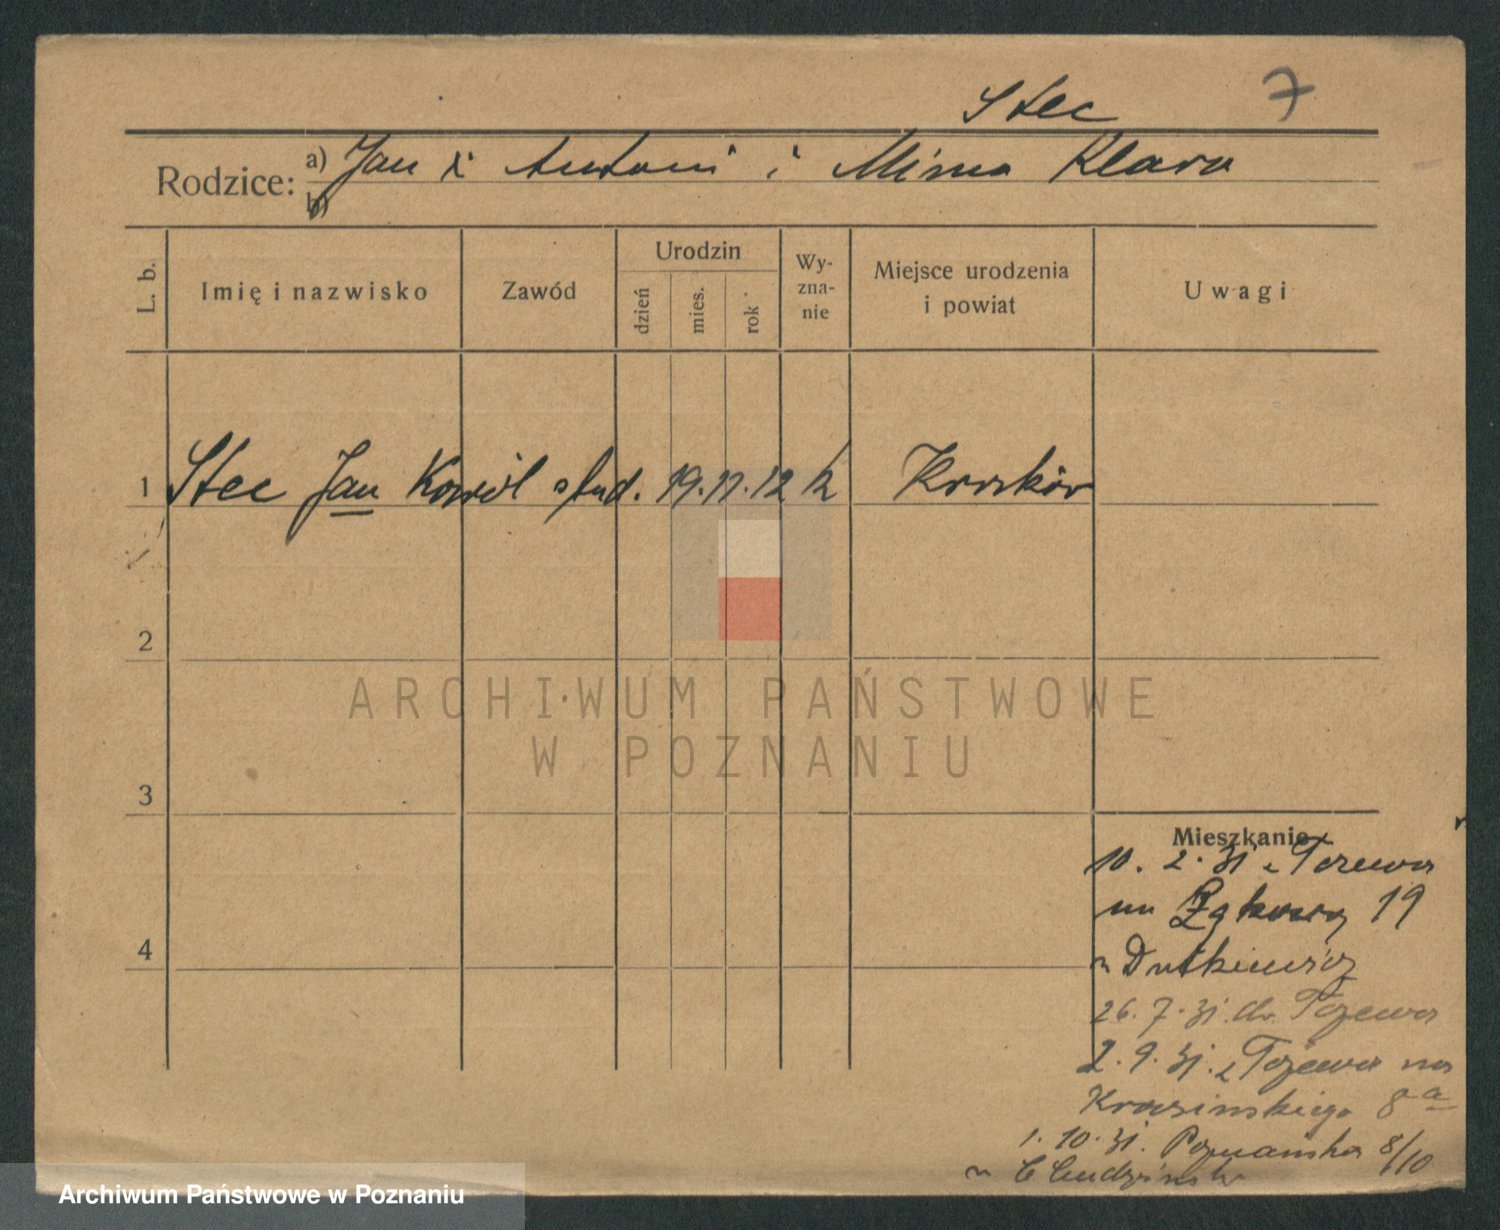 Stec 7
Rodzice: a) Jan i Antoni i Mina Klara
b)
L. b.
Imię i nazwisko
Zawód
Urodzin
dzień
mies.
rok
Wy-
zna-
nie
Miejsce urodzenia
i powiat
Uwagi
1 Stec Jan Karól stud. 19.11.12 k Kraków
2
ARCHIWUM PAŃSTWOWE
W POZNANIU
3
Mieszkanie
10. 2. 31 z Tczewa
na 19
4
n Dutkiewicz
26. 7. 31. do Tczewa
2. 9. 31. z Tczewa na
Krasińskiego 8 a
1. 10. 31. Poznańska 8/10
n
Archiwum Państwowe w Poznaniu